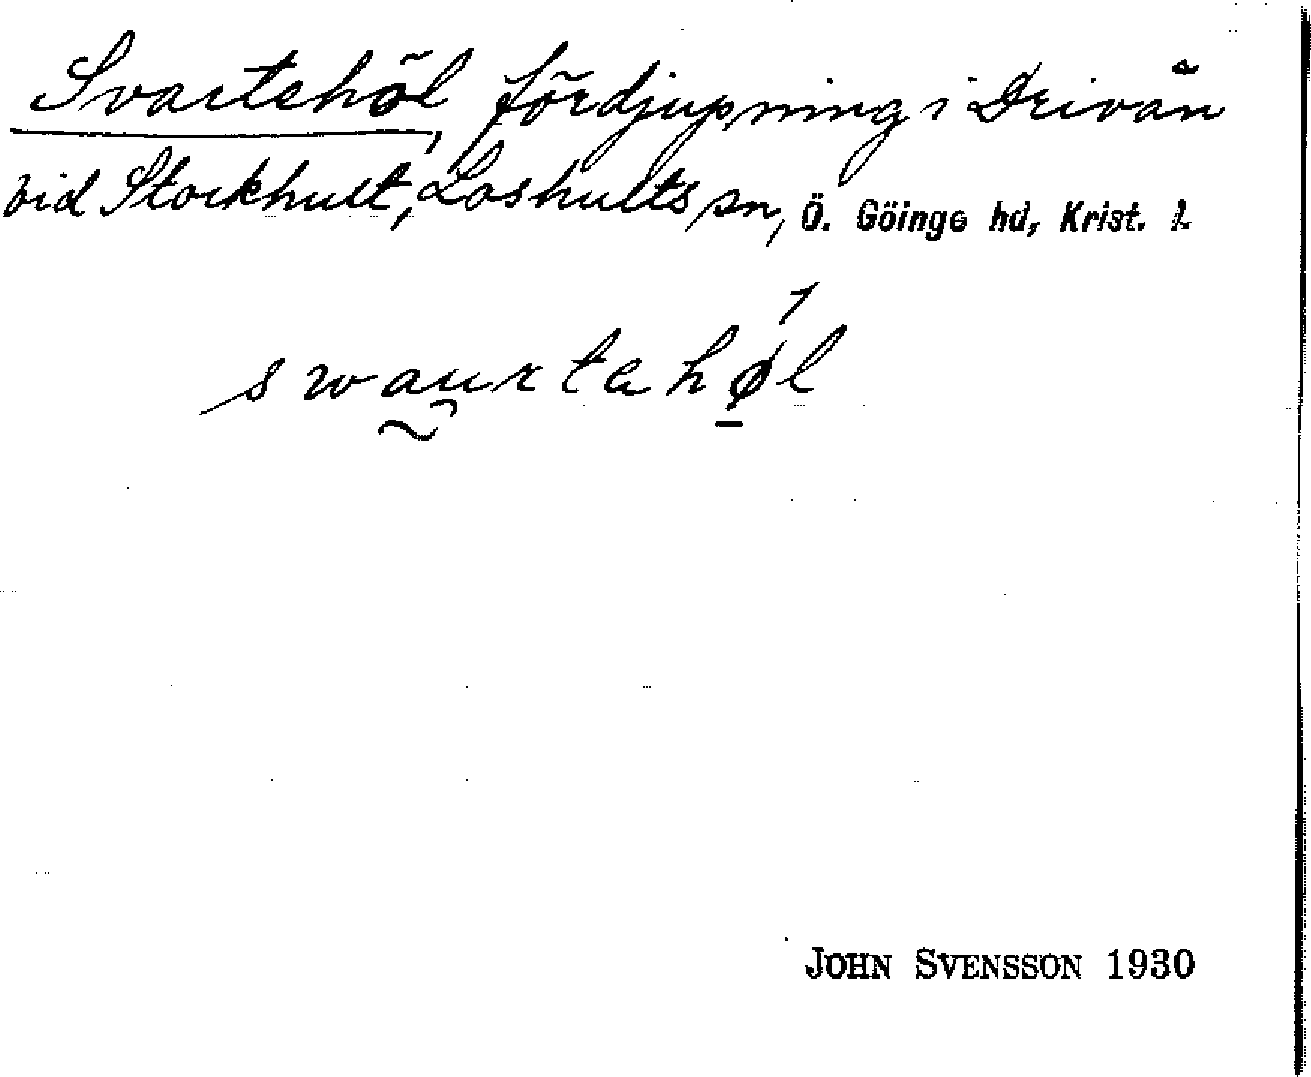 Svartehöl, fördjupning i Drivån
vid Stockhult, Loshults sn, Ö. Göinge hd, Krist. l.
swaurtahǿ̱l
JOHN SVENSSON 1930